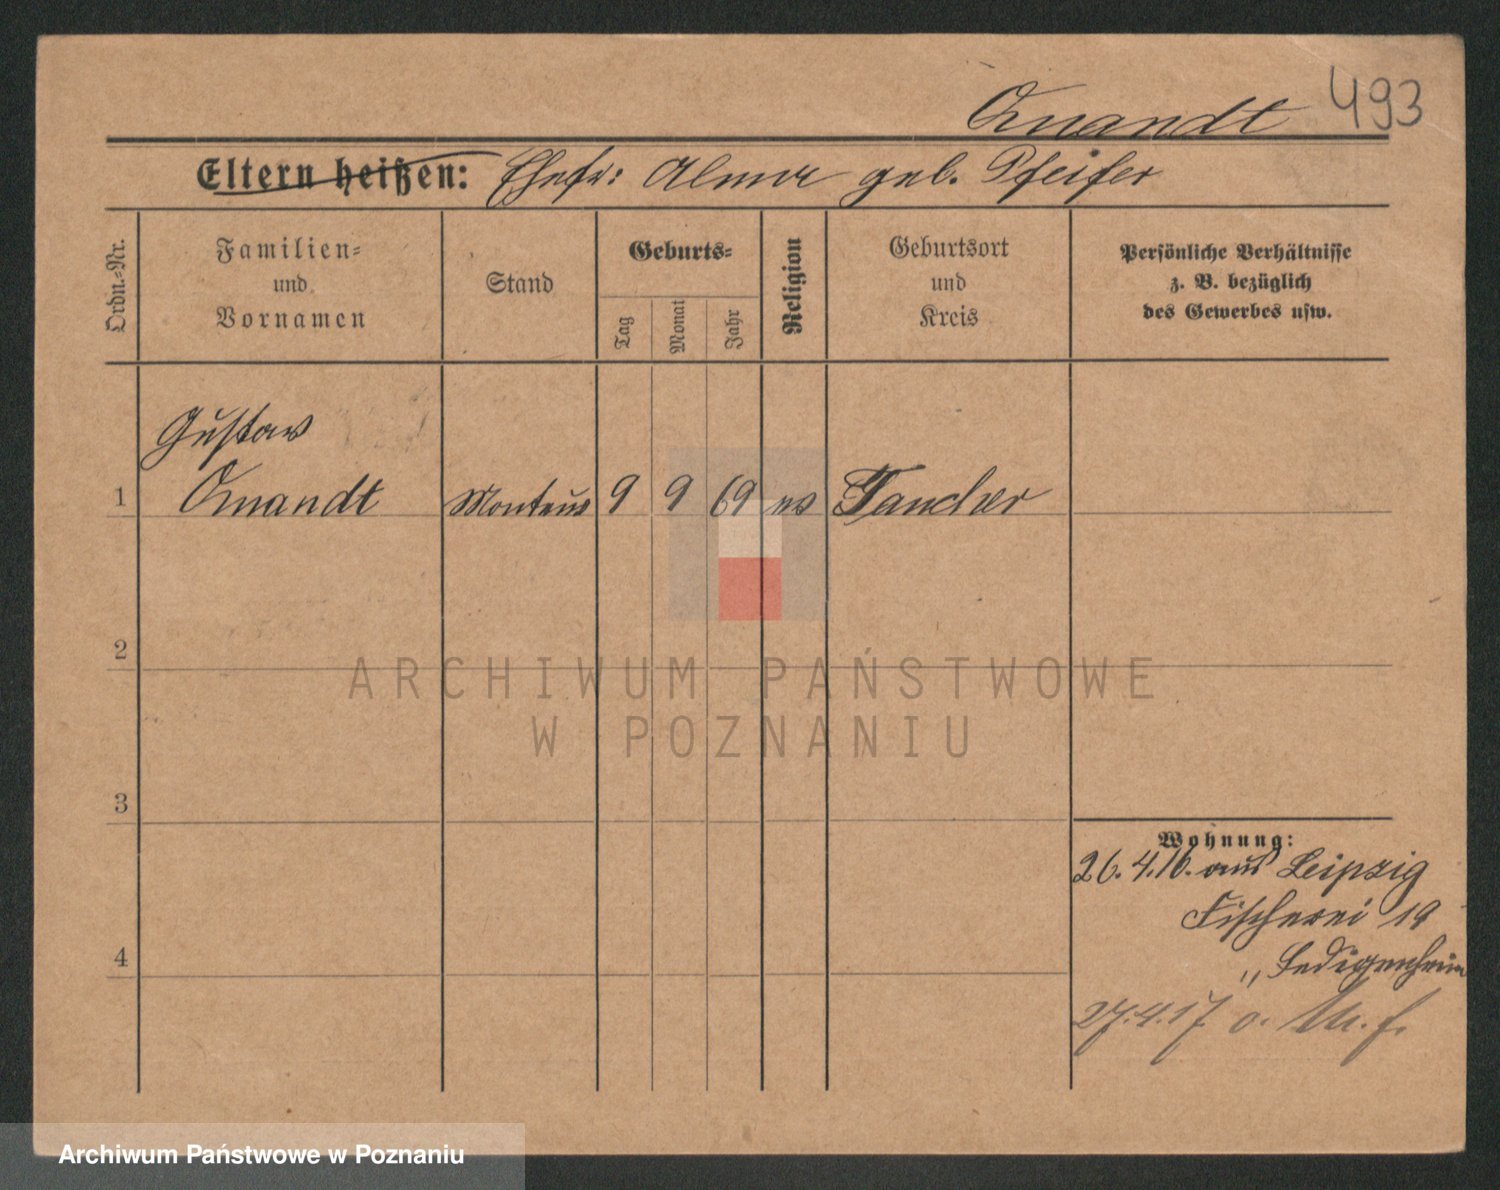 Quandt 493
Eltern heißen: Ehefr: Alma geb. Pfeifer
Ordn.=Nr.
Familien=
und
Vornamen
Stand
Geburts=
Tag
Monat
Jahr
Religion
Geburtsort
und
Kreis
Persönliche Verhältnisse
z. B. bezüglich
des Gewerbes usw.
Gustav
1 Quandt Monteur 9 9 69 ev Taucha
2
3
4
Wohnung:
26.4.16. aus Leipzig
Fischerei 19
„ Ledigenheim
27.4.17 o.
ARCHIWUM PAŃSTWOWE
W POZNANIU
Archiwum Państwowe w Poznaniu